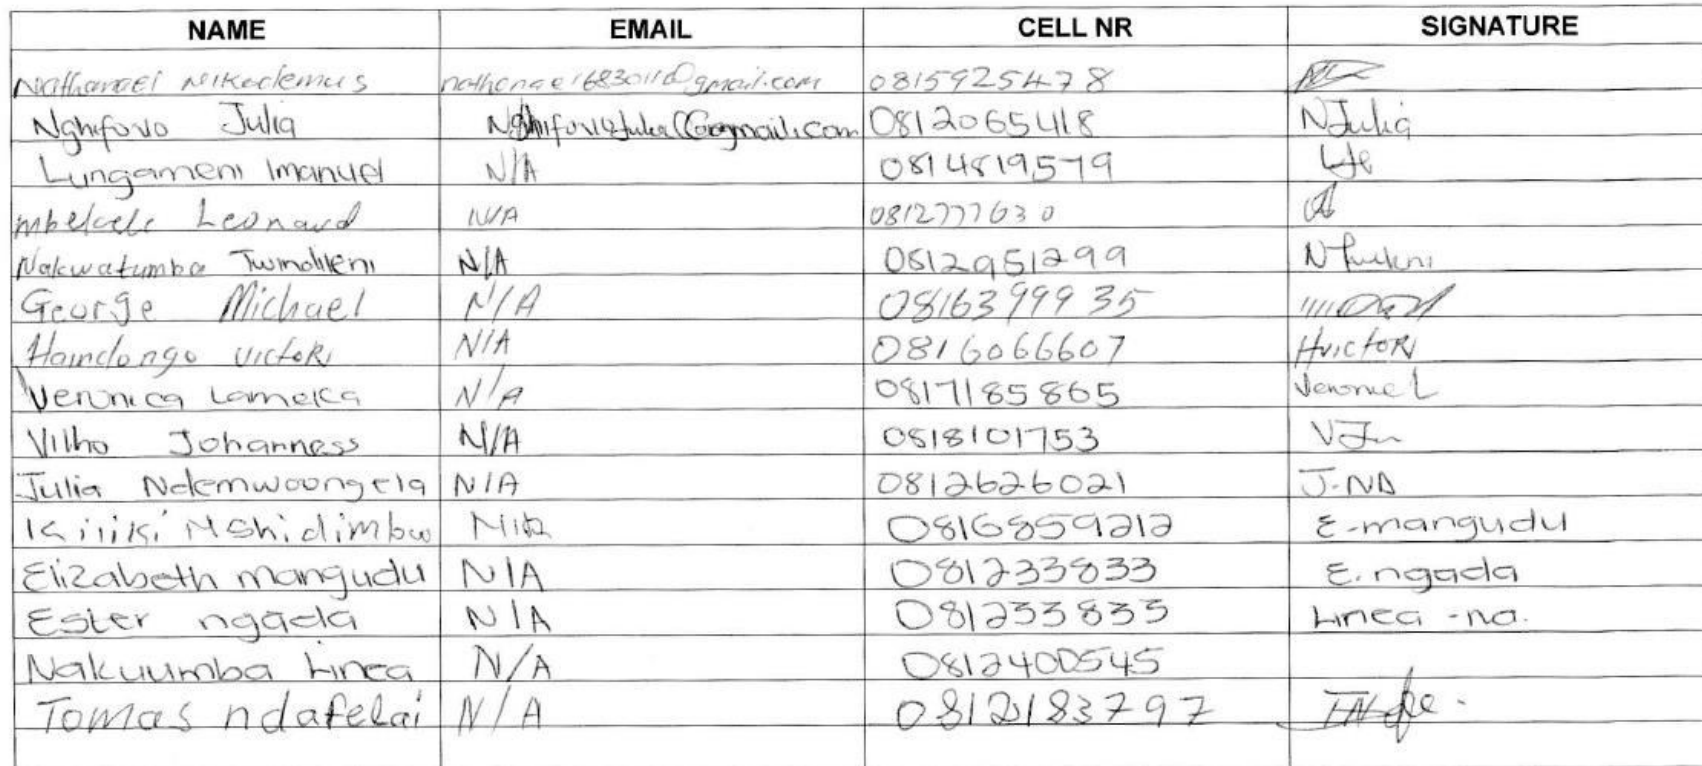 NAME EMAIL CELL NR SIGNATURE
Nathanael Nikodemus nathanael683011@gmail.com 0815925478
Nghifovo Julia 0812065418 NJulia
Lungameni Imanuel N/A 0814819579
Leonard N/A 0812777630
Nakwatumba Twindileni N/A 0812951299
George Michael N/A 0816399935
Haindongo victoRi N/A 0816066607 HvictoRi
Veronica Lameka N/A 0817185865 Veronic L
Vilho Johanness N/A 0818101753
Julia Ndemwoongela N/A 0812626021 J-ND
Kiiiki Nshidimbw N/A 0816859212 E-mangudu
Elizabeth mangudu N/A 081233833 E.ngada
Ester ngada N/A 081233833 Linea -na.
Nakuumba Linea N/A 0812400545
Tomas ndafelai N/A 0812183797